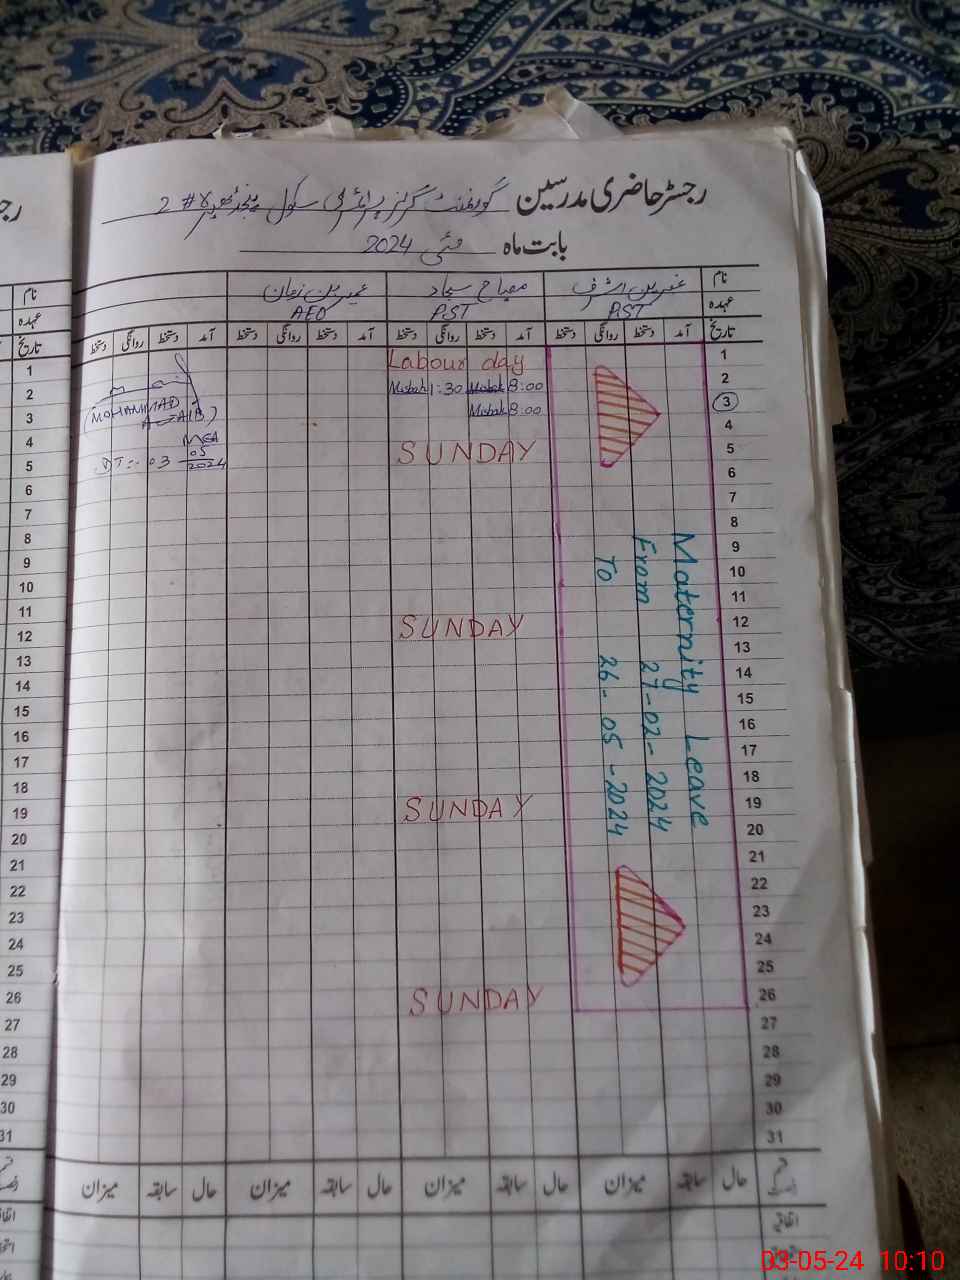 رجسٹر حاضری مدرسین گورنمنٹ گرلز پرائمری سکول #2
بابت ماہ مئی 2024
نام
عہدہ PST PST AEO
تاریخ آمد دستخط روانگی دستخط آمد دستخط روانگی دستخط آمد دستخط روانگی دستخط آمد دستخط روانگی دستخط تاریخ
1 Labour day 1
2 8:00 Misbah 1:30 Misbah 2
3 8:00 Misbah 3
MOHAMMAD
4 MEA 4
5 SUNDAY DT:- 03 05 2024 5
6 6
7 7
8 8
9 9
10 10
11 11
12 SUNDAY 12
13 13
14 14
15 15
16 16
17 17
18 18
19 SUNDAY 19
20 20
21 21
22 22
23 23
24 24
25 25
26 SUNDAY 26
27 27
28 28
29 29
30 30
31 31
Maternity Leave
From 27-02-2024
To 26-05-2024
حال سابقہ میزان حال سابقہ میزان حال سابقہ میزان حال سابقہ میزان
03-05-24 10:10